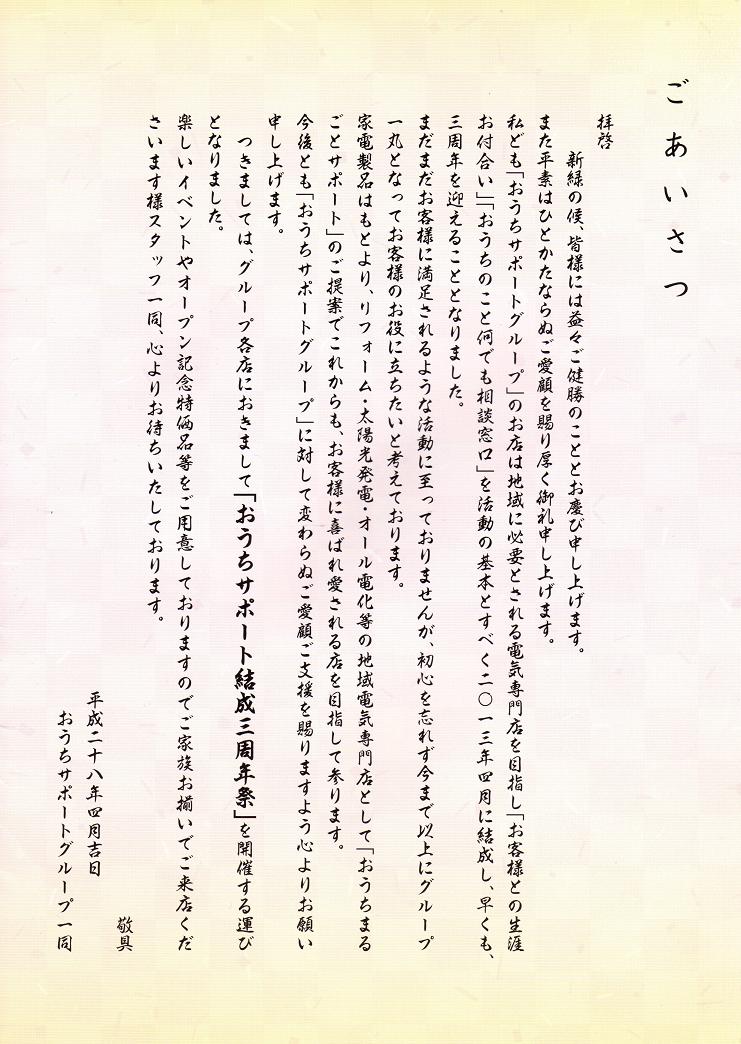 ごあいさつ
拝啓
新緑の候、皆様には益々ご健勝のこととお慶び申し上げます。
また平素はひとかたならぬご愛顧を賜り厚く御礼申し上げます。
私ども「おうちサポートグループ」のお店は地域に必要とされる電気専門店を目指し「お客様との生涯
お付合い」「おうちのこと何でも相談窓口」を活動の基本とすべく二〇一三年四月に結成し、早くも、
三周年を迎えることとなりました。
まだまだお客様に満足されるような活動に至っておりませんが、初心を忘れず今まで以上にグループ
一丸となってお客様のお役に立ちたいと考えております。
家電製品はもとより、リフォーム・太陽光発電・オール電化等の地域電気専門店として「おうちまる
ごとサポート」のご提案でこれからも、お客様に喜ばれ愛される店を目指して参ります。
今後とも「おうちサポートグループ」に対して変わらぬご愛顧ご支援を賜りますよう心よりお願い
申し上げます。
つきましては、グループ各店におきまして「おうちサポート結成三周年祭」を開催する運び
となりました。
楽しいイベントやオープン記念特価名等をご用意しておりますのでご家族お揃いでご来店くだ
さいます様スタッフ一同、心よりお待ちいたしております。
敬具
平成二十八年四月吉日
おうちサポートグループ一同